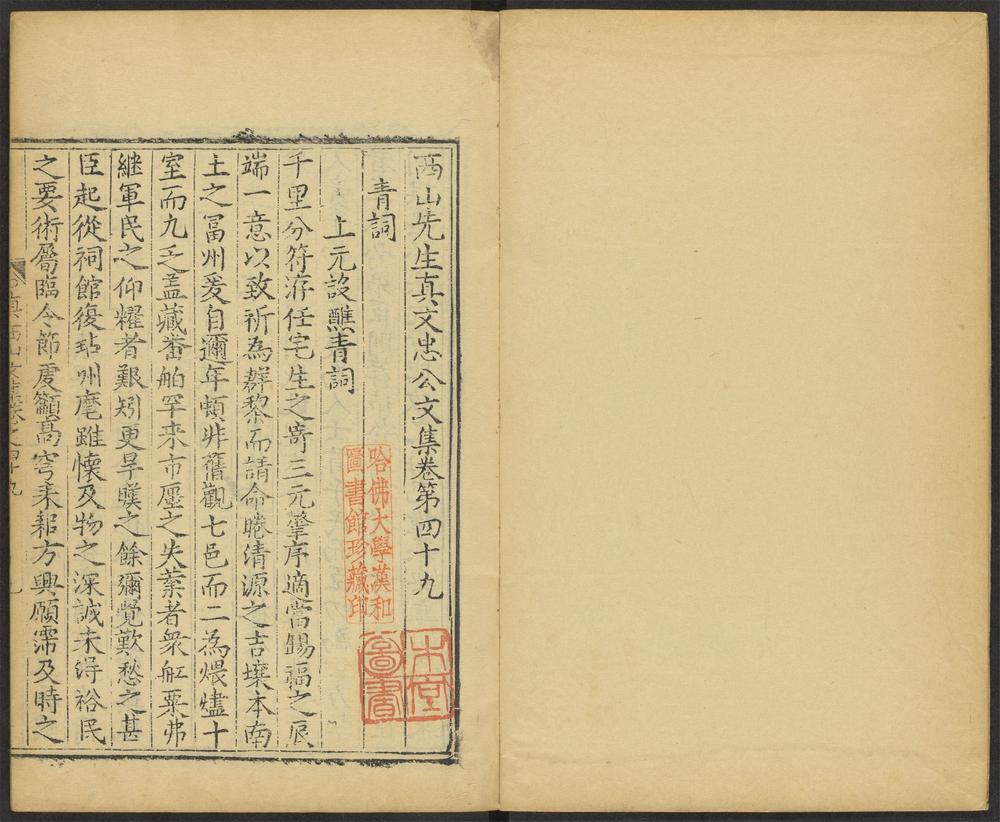 西山先生真文忠公文集卷第四十九
青詞
上元設醮青詞
千里分符洊任宅生之寄三元肇序適當錫福之辰
端一意以致祈為群黎而請命睠清源之吉壤本南
土之冨州爰自邇年頓非舊觀七邑而二為煨燼十
室而九乏盖藏畨舶罕来市廛之失業者衆舡粟弗
継軍民之仰糴者艱矧更旱暵之餘彌覺歎愁之甚
臣起從祠館復玷州麾雖懷及物之深誠未得裕民
之要術屬臨令節虔籲髙穹来牟方興願霈及時之
真西山文集卷之四十九
哈佛大學漢和
圖書館珍藏印
圖書